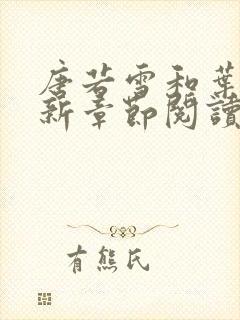 唐若雪和葉
新章節閱讀
有熊氏